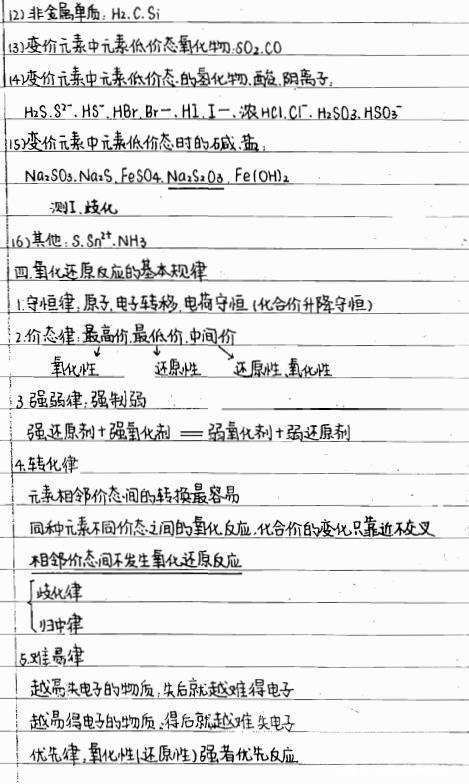 (2)非金属单质:H₂.C.Si
(3)变价元素中元素低价态氧化物:SO₂.CO
(4)变价元素中元素低价态的氢化物.酸.阴离子:
H₂S.S²⁻.HS⁻.HBr.Br⁻.HI.I⁻.浓HCl.Cl⁻.H₂SO₃.HSO₃⁻
(5)变价元素中元素低价态时的碱.盐:
Na₂SO₃.Na₂S.FeSO₄.Na₂S₂O₃.Fe(OH)₂
测I.歧化
(6)其他:S.Sn²⁺.NH₃
四.氧化还原反应的基本规律
1.守恒律:原子.电子转移.电荷守恒(化合价升降守恒)
2.价态律:最高价.最低价.中间价
氧化性 还原性 还原性.氧化性
3.强弱律:强制弱
强还原剂+强氧化剂══弱氧化剂+弱还原剂
4.转化律
元素相邻价态间的转换最容易
同种元素不同价态之间的氧化反应.化合价的变化只靠近不交叉
相邻价态间不发生氧化还原反应
歧化律
归中律
5.难易律
越易失电子的物质,失后就越难得电子
越易得电子的物质,得后就越难失电子
优先律:氧化性(还原性)强者优先反应